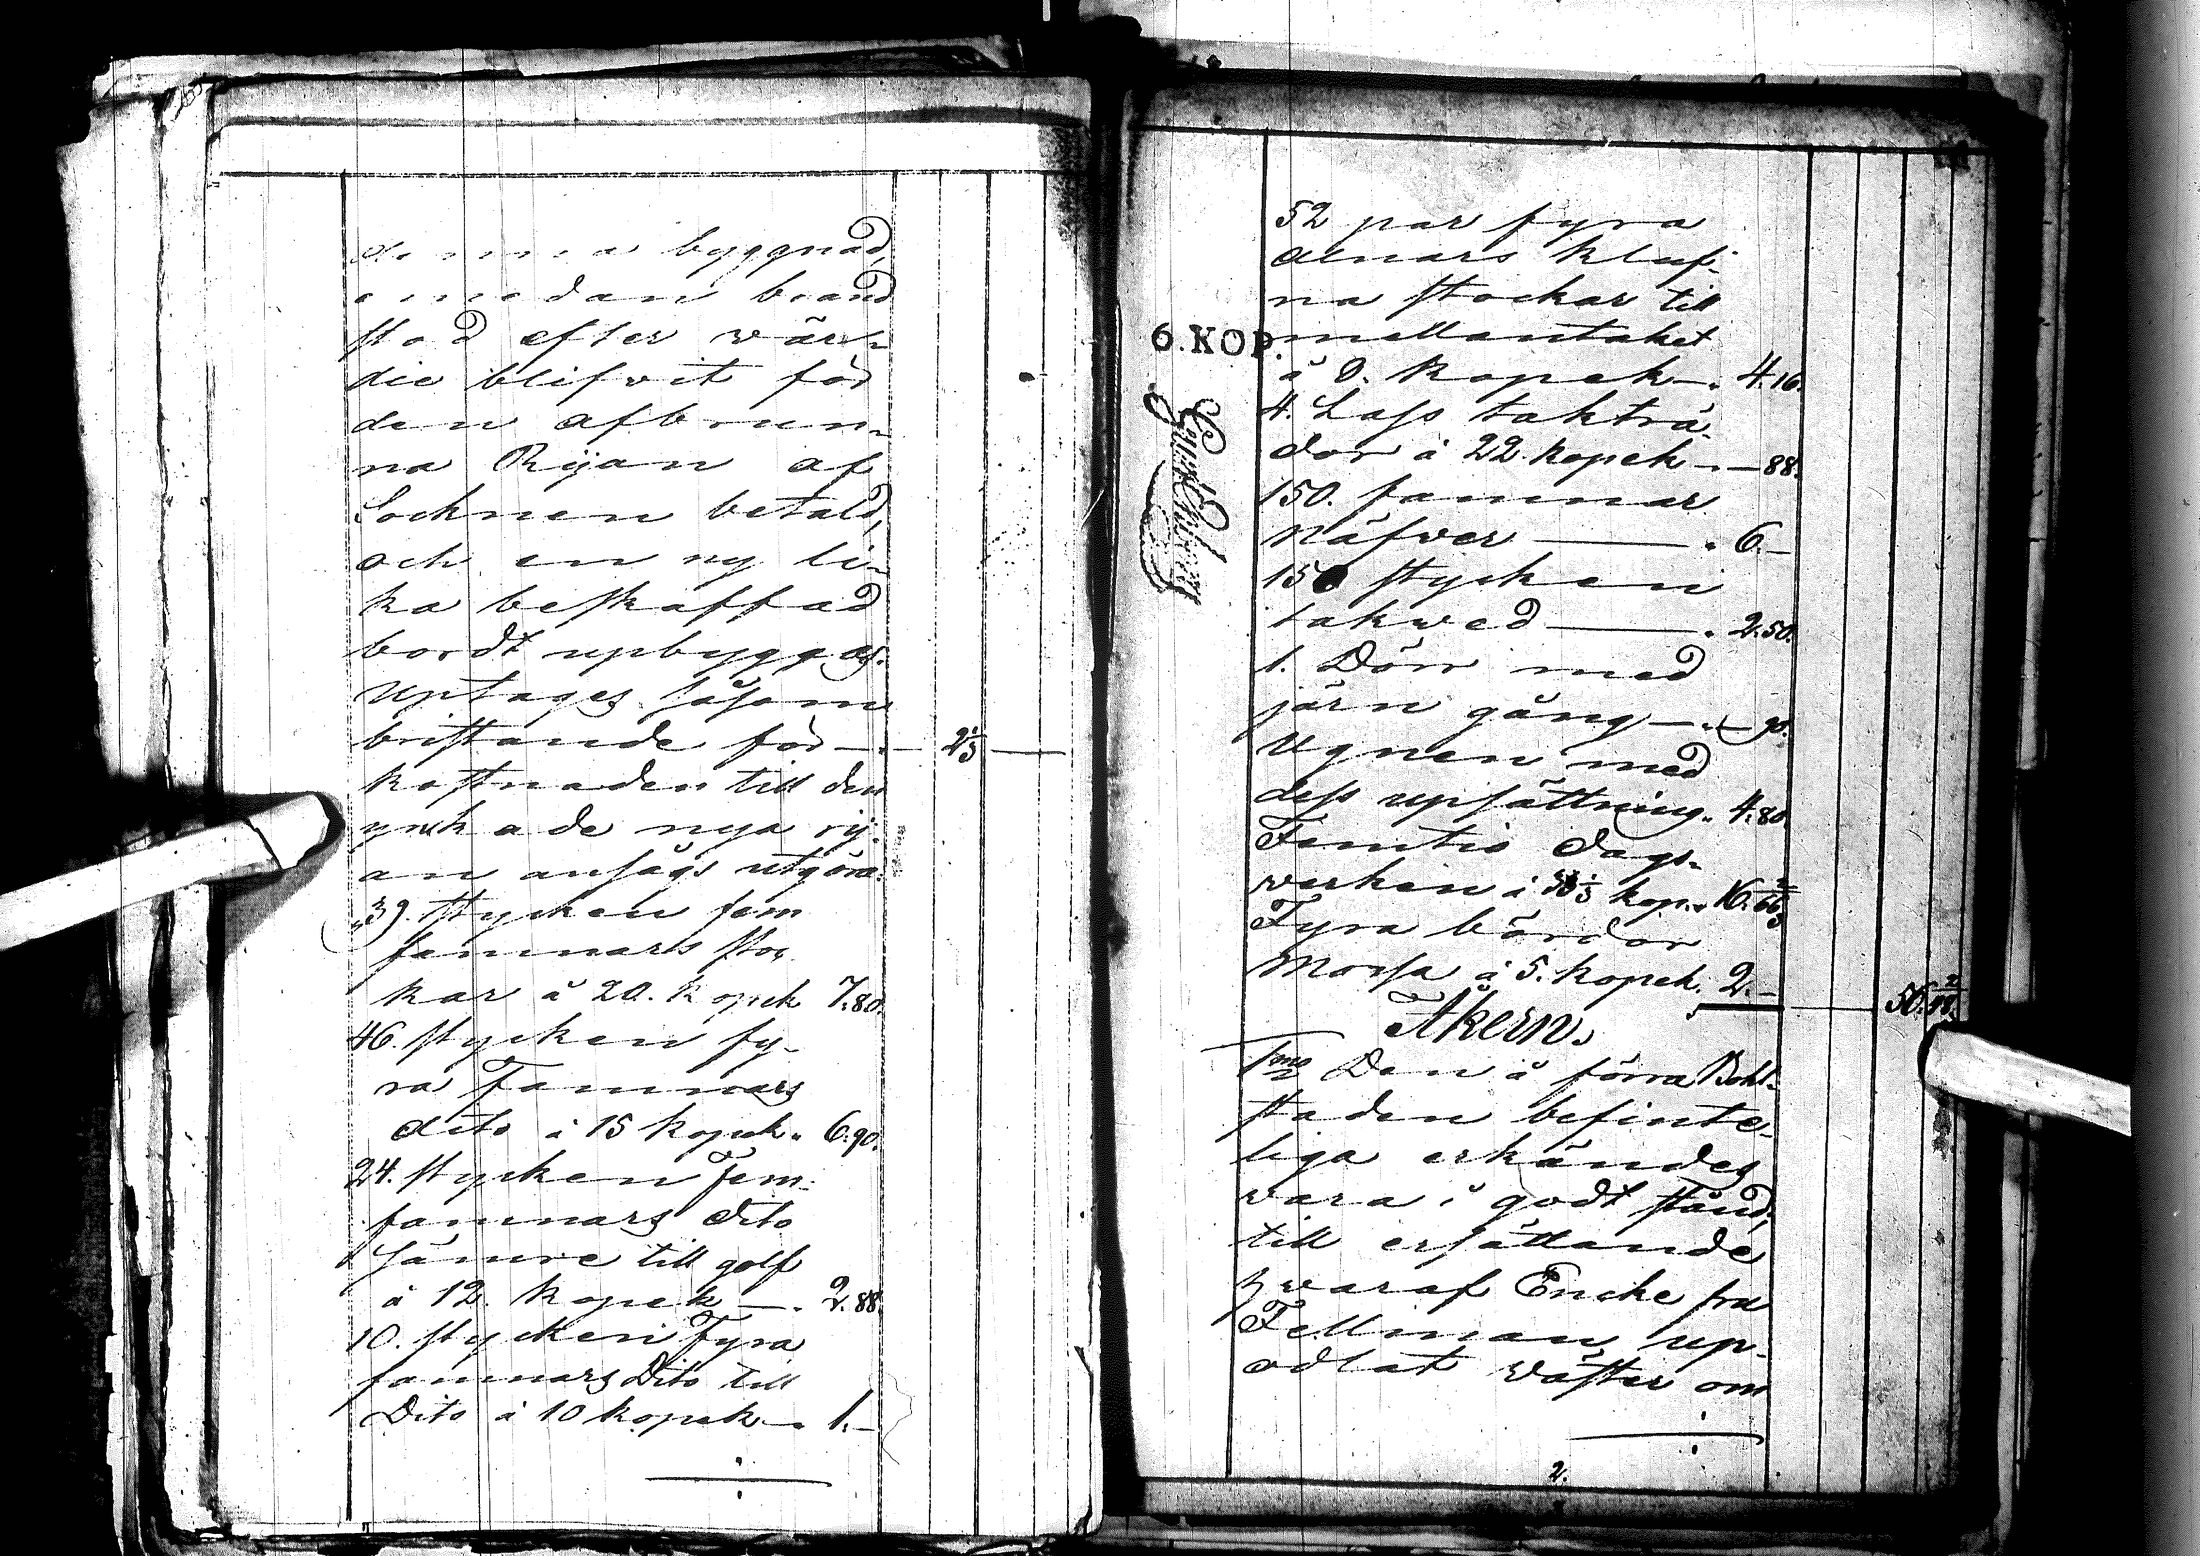 denna byggnad,
emedan brand
stod efter wär-
die blifvit för
den afbrun-
na Rijan af
Socknen betald,
och en ny li-
ka beskaffad
bordt upbyggas.
Uptages såsom
bristande för — 2/3
kostnaden till den
ynkade nya rij-
an ansågs utgöra.
39. stycken fem
famnars stoc
kar à 20. kopek 7.80.
46. stycken fy-
ra Famnars
dito à 15 kopek. 6.90.
24. stycken Fem-
famnars dito
sämre till golf
à 12. kopek —. 2.88.
10. stycken Fyra
famnars Dito till
Dito à 10 kopek. 1.—
52 par fyra
alnars kluf-
na stockar till
6. KOP.
mellantaket
à 8. kopek —. 4.16.
4. Lass taktrå-
dor à 22. kopek —. — 88.
150. famnar
Näfver —. 6.—
150 stycken
takved —. 2.50.
1. Dörr med
järn gång —. — 90.
Ugnen med
dess upsättning. 4.80.
Femtio dags-
verken à 33 1/3 kop. 16.66 2/3
Fyra bördor
Mossa à 5. kopek. 2.—
56.48 2/3
Åkern.
1mo Den å förra Bohl-
staden befinte-
liga erkändes
vara i godt stånd,
till ersättande
hvaraf Encke fru
Fellman up-
odlat väster om
2.